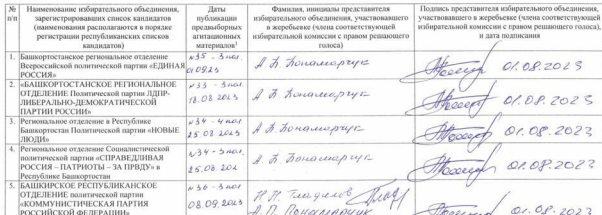 №
п/п
Наименование избирательного объединения,
зарегистрировавших список кандидатов
(наименования располагаются в порядке
регистрации республиканских списков
кандидатов)
Даты
публикации
предвыборных
агитационных
материалов¹
Фамилия, инициалы представителя
избирательного объединения, участвовавшего
в жеребьевке (члена соответствующей
избирательной комиссии с правом решающего
голоса)
Подпись представителя избирательного объединения,
участвовавшего в жеребьевке (члена соответствующей
избирательной комиссии с правом решающего голоса),
и дата подписания
1. Башкортостанское региональное отделение
Всероссийской политической партии «ЕДИНАЯ
РОССИЯ»
№35 - 3 пол.
01.09.23
А. В. Понамарчук
01.08.2023
2. «БАШКОРТОСТАНСКОЕ РЕГИОНАЛЬНОЕ
ОТДЕЛЕНИЕ Политической партии ЛДПР-
ЛИБЕРАЛЬНО-ДЕМОКРАТИЧЕСКОЙ
ПАРТИИ РОССИИ»
№33 - 3 пол.
18.08.2023
А. В. Понамарчук
01.08.2023
3. Региональное отделение в Республике
Башкортостан Политической партии «НОВЫЕ
ЛЮДИ»
№34 - 4 пол.
25.08.2023
А. В. Понамарчук
01.08.2023
4. Региональное отделение Социалистической
политической партии «СПРАВЕДЛИВАЯ
РОССИЯ – ПАТРИОТЫ – ЗА ПРВДУ» в
Республике Башкортостан
№34 - 3 пол.
А. В. Понамарчук
01.08.2023
5. БАШКИРСКОЕ РЕСПУБЛИКАНСКОЕ
ОТДЕЛЕНИЕ политической партии
«КОММУНИСТИЧЕСКАЯ ПАРТИЯ
РОССИЙСКОЙ ФЕДЕРАЦИИ»
№36 - 3 пол.
08.09.2023
Понамарчук
01.08.2023